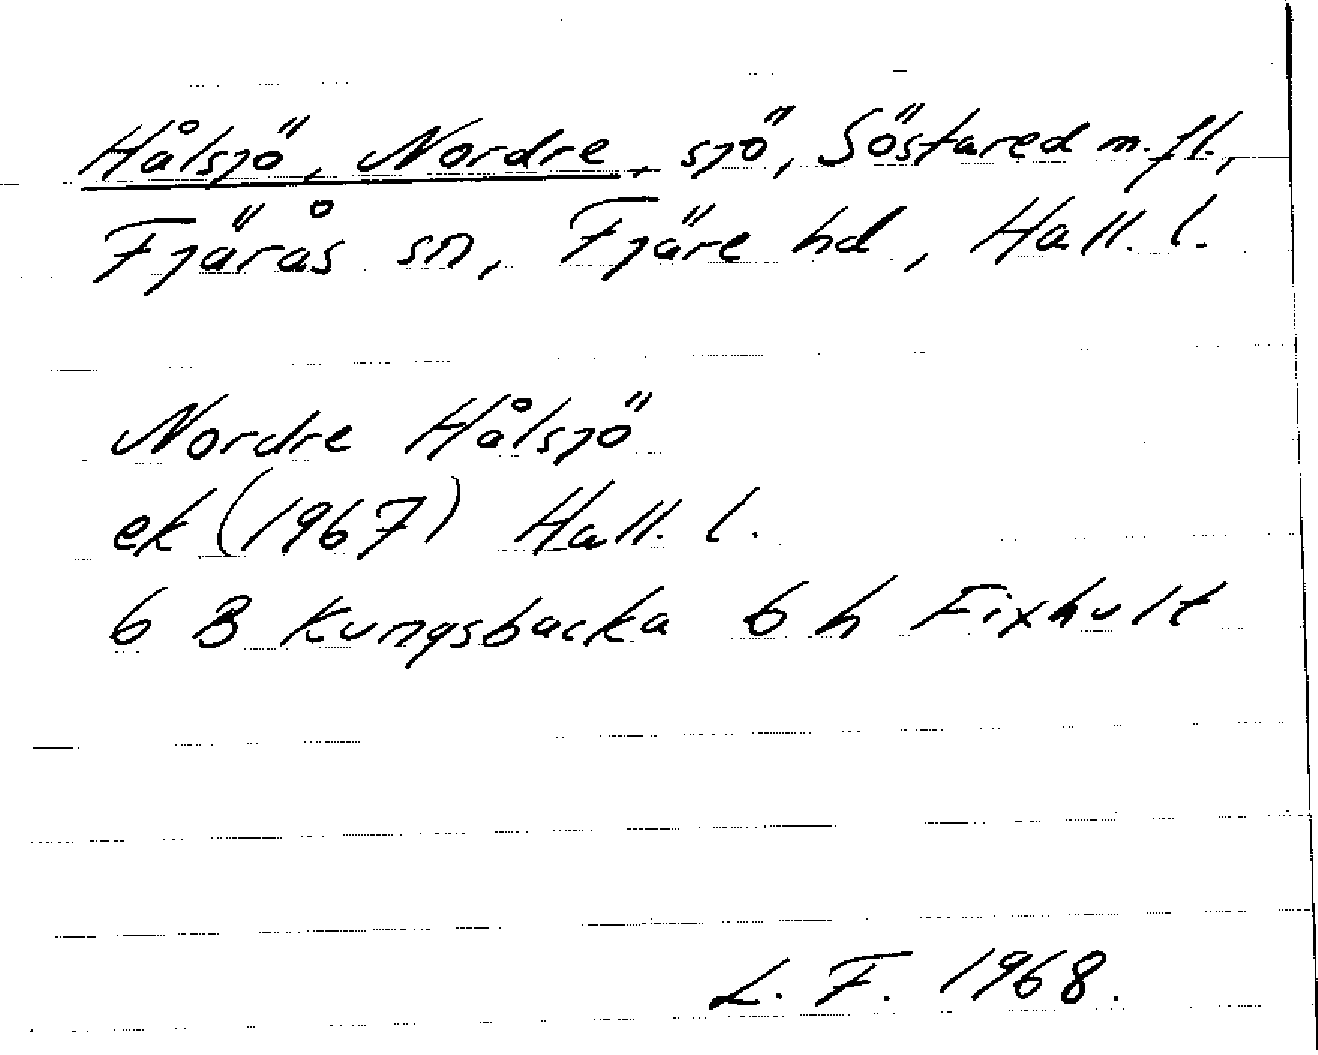 Hålsjö, Nordre, sjö, Söstared m.fl.,
Fjärås sn, Fjäre hd, Hall. l.
Nordre Hålsjö
ek (1967) Hall. l.
6 B Kungsbacka 6 h Fixhult
L. F. 1968.